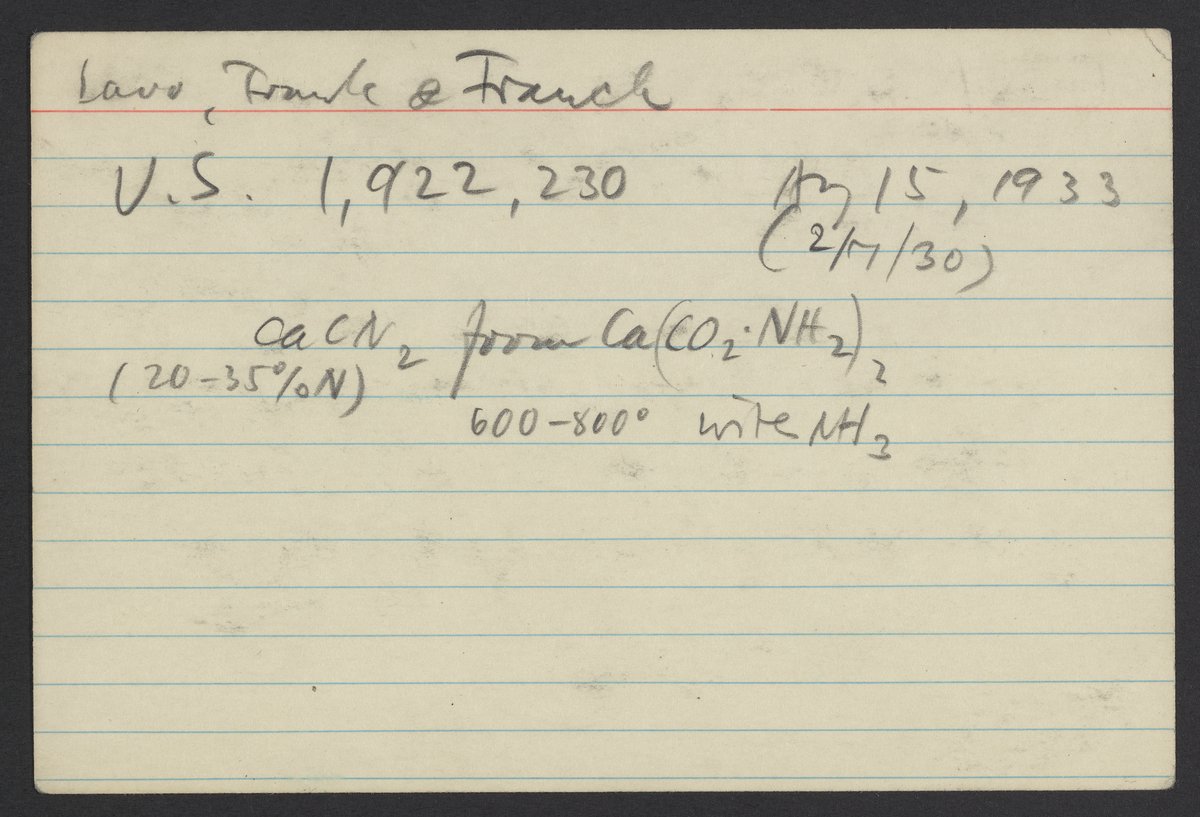 Caro, Frank & Franck
U.S. 1,922,230 Aug 15, 1933
(2/7/30)
CaCN2 from Ca(CO2·NH2)2
(20-35%N)
600-800° with NH3